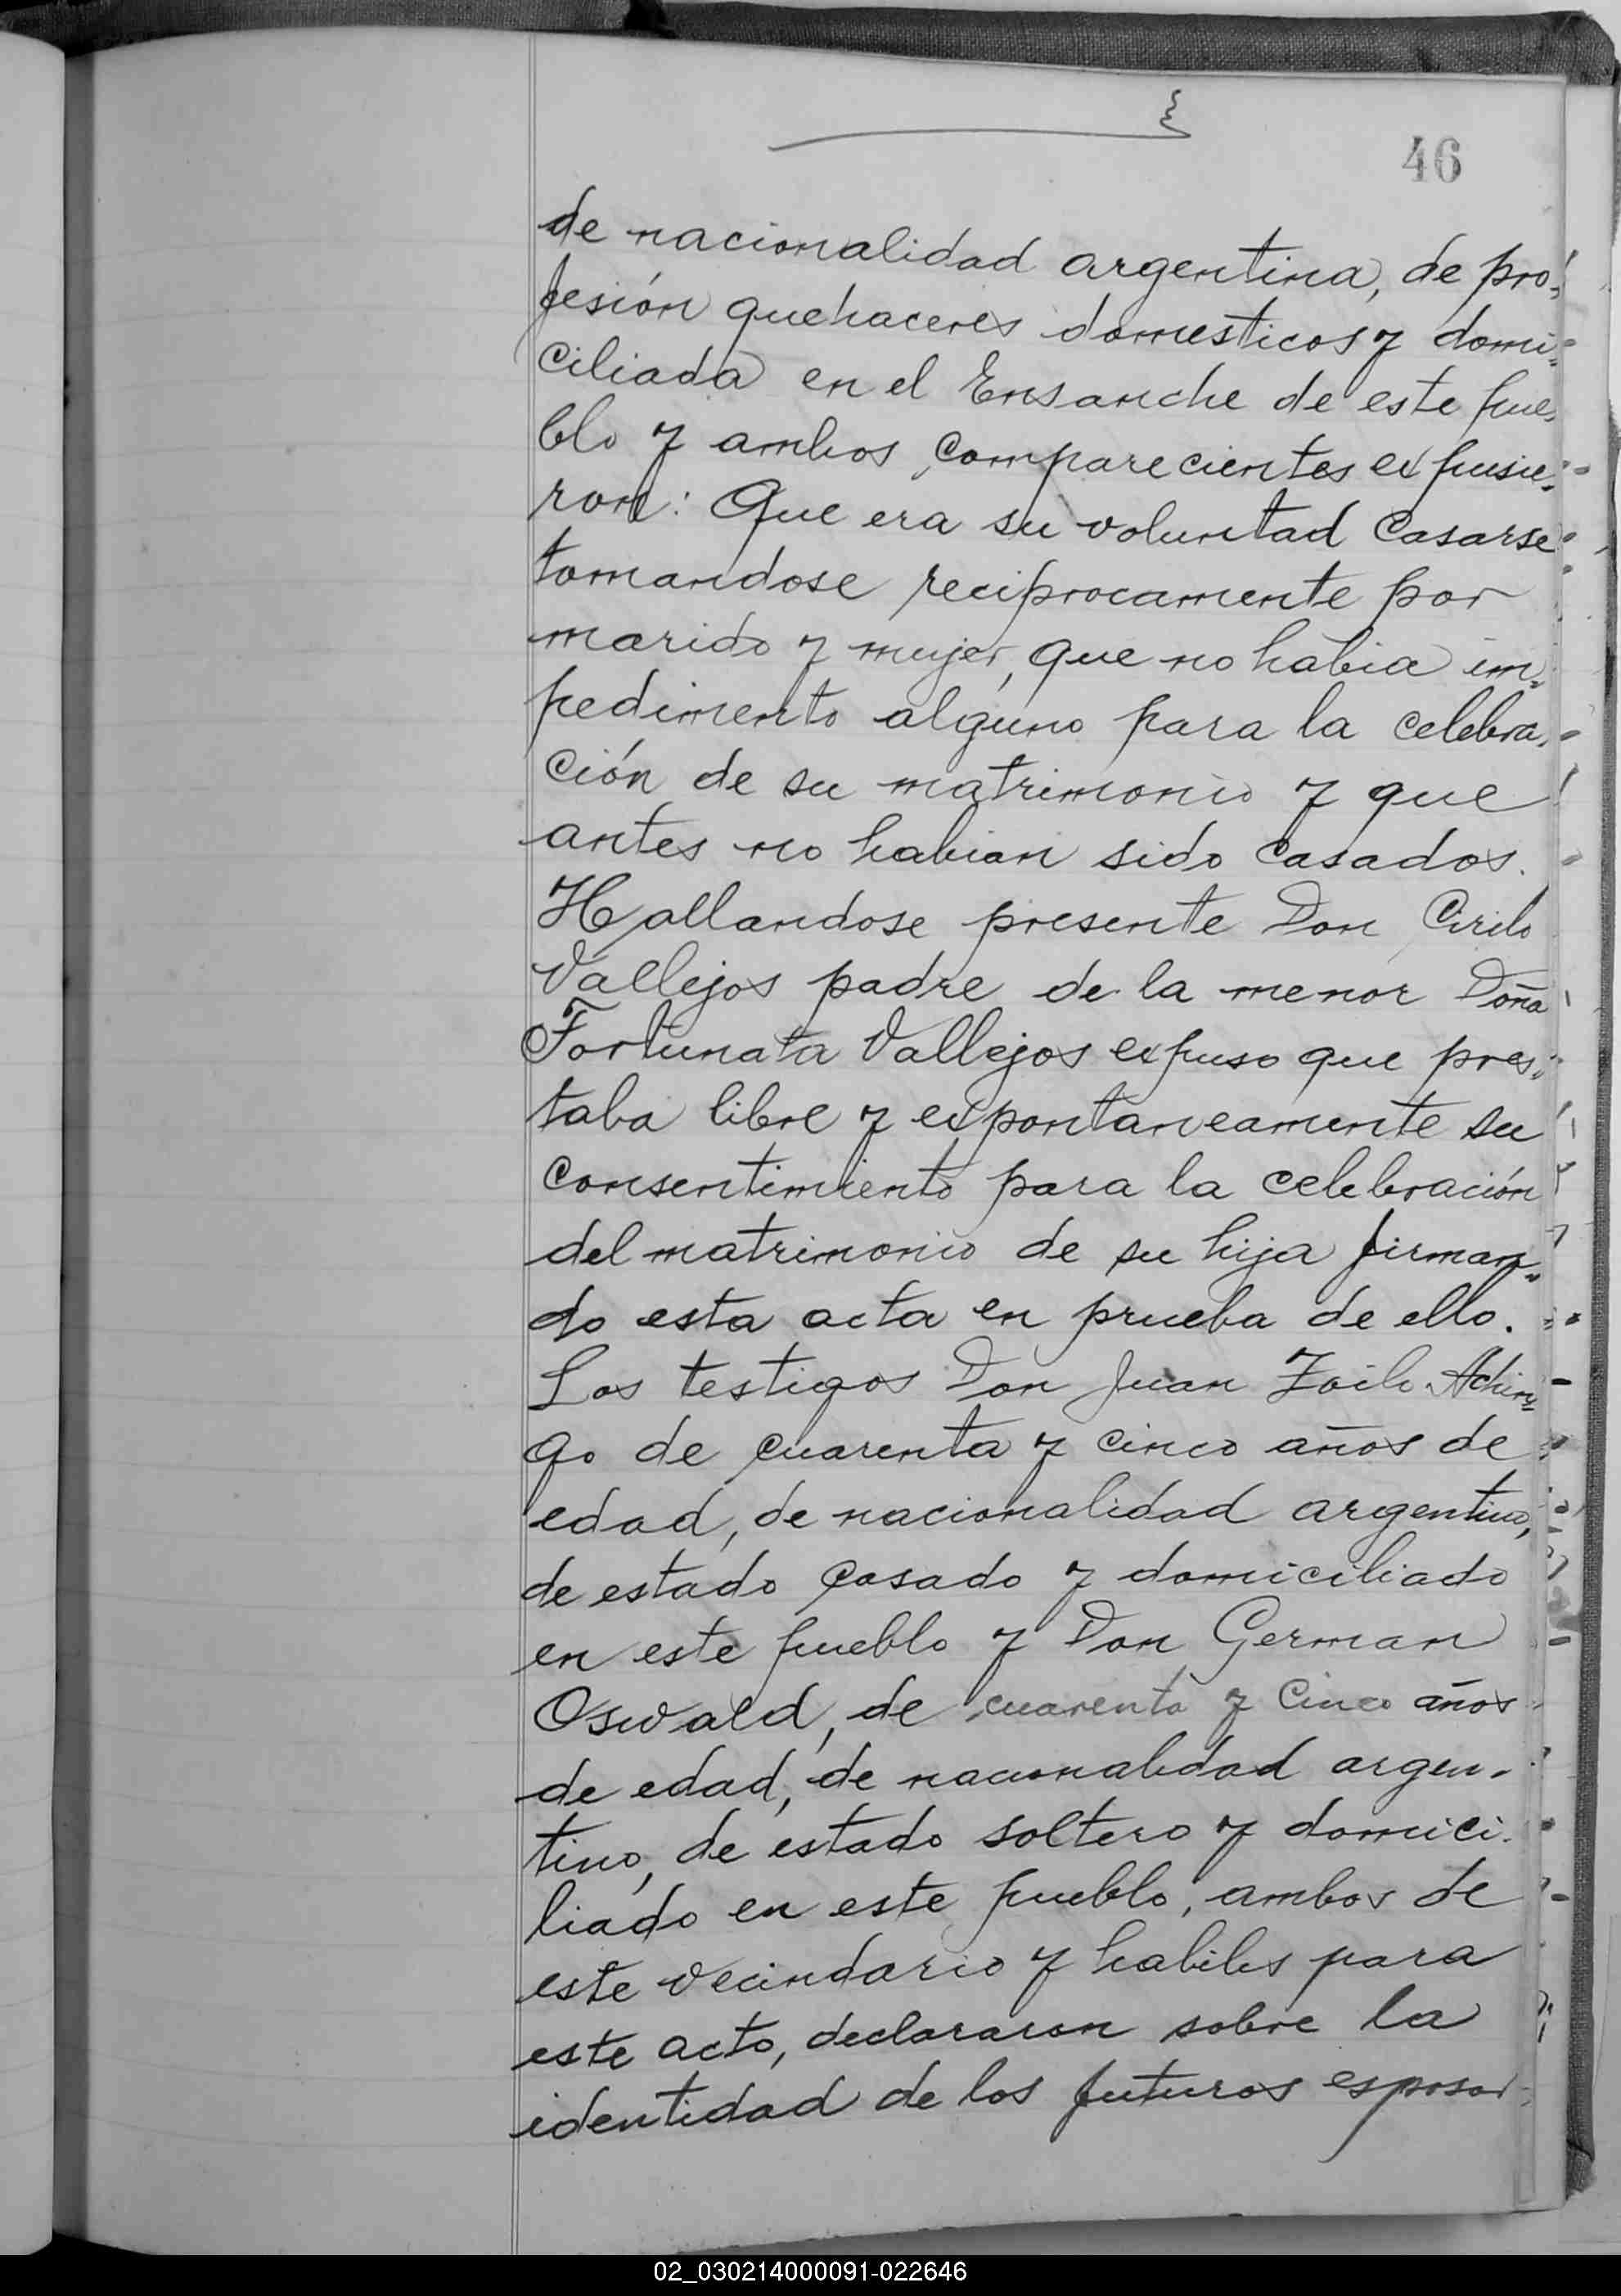 46
de nacionalidad argentina, de pro=
fesión quehaceres domesticos y domi=
ciliada en el Ensanche de este pue=
blo y ambos comparecientes expusie=
ron: Que era su voluntad casarse
tomandose reciprocamente por
marido y mujer, que no habia im=
pedimento alguno para la celebra=
ción de su matrimonio y que
antes no habian sido casados.
Hallandose presente Don Cirilo
Vallejos padre de la menor Doña
Fortunata Vallejos expuso que pres=
taba libre y espontaneamente su
consentimiento para la celebración
del matrimonio de su hija firman=
do esta acta en prueba de ello.
Los testigos Don Juan Zoilo
go de cuarenta y cinco años de
edad, de nacionalidad argentino,
de estado casado y domiciliado
en este pueblo y Don German
Oswald, de cuarenta y cinco años
de edad, de nacionalidad argen-
tino, de estado soltero y domici-
liado en este pueblo, ambos de
este vecindario y habiles para
este acto, declararon sobre la
identidad de los futuros esposos
02_030214000091-022646